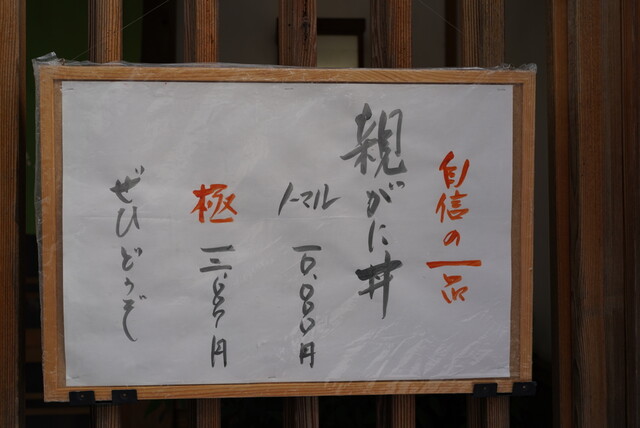 自信の一品
親がに丼
ノーマル 一〇.〇〇〇円
極 一三.〇〇〇円
ぜひどうぞ